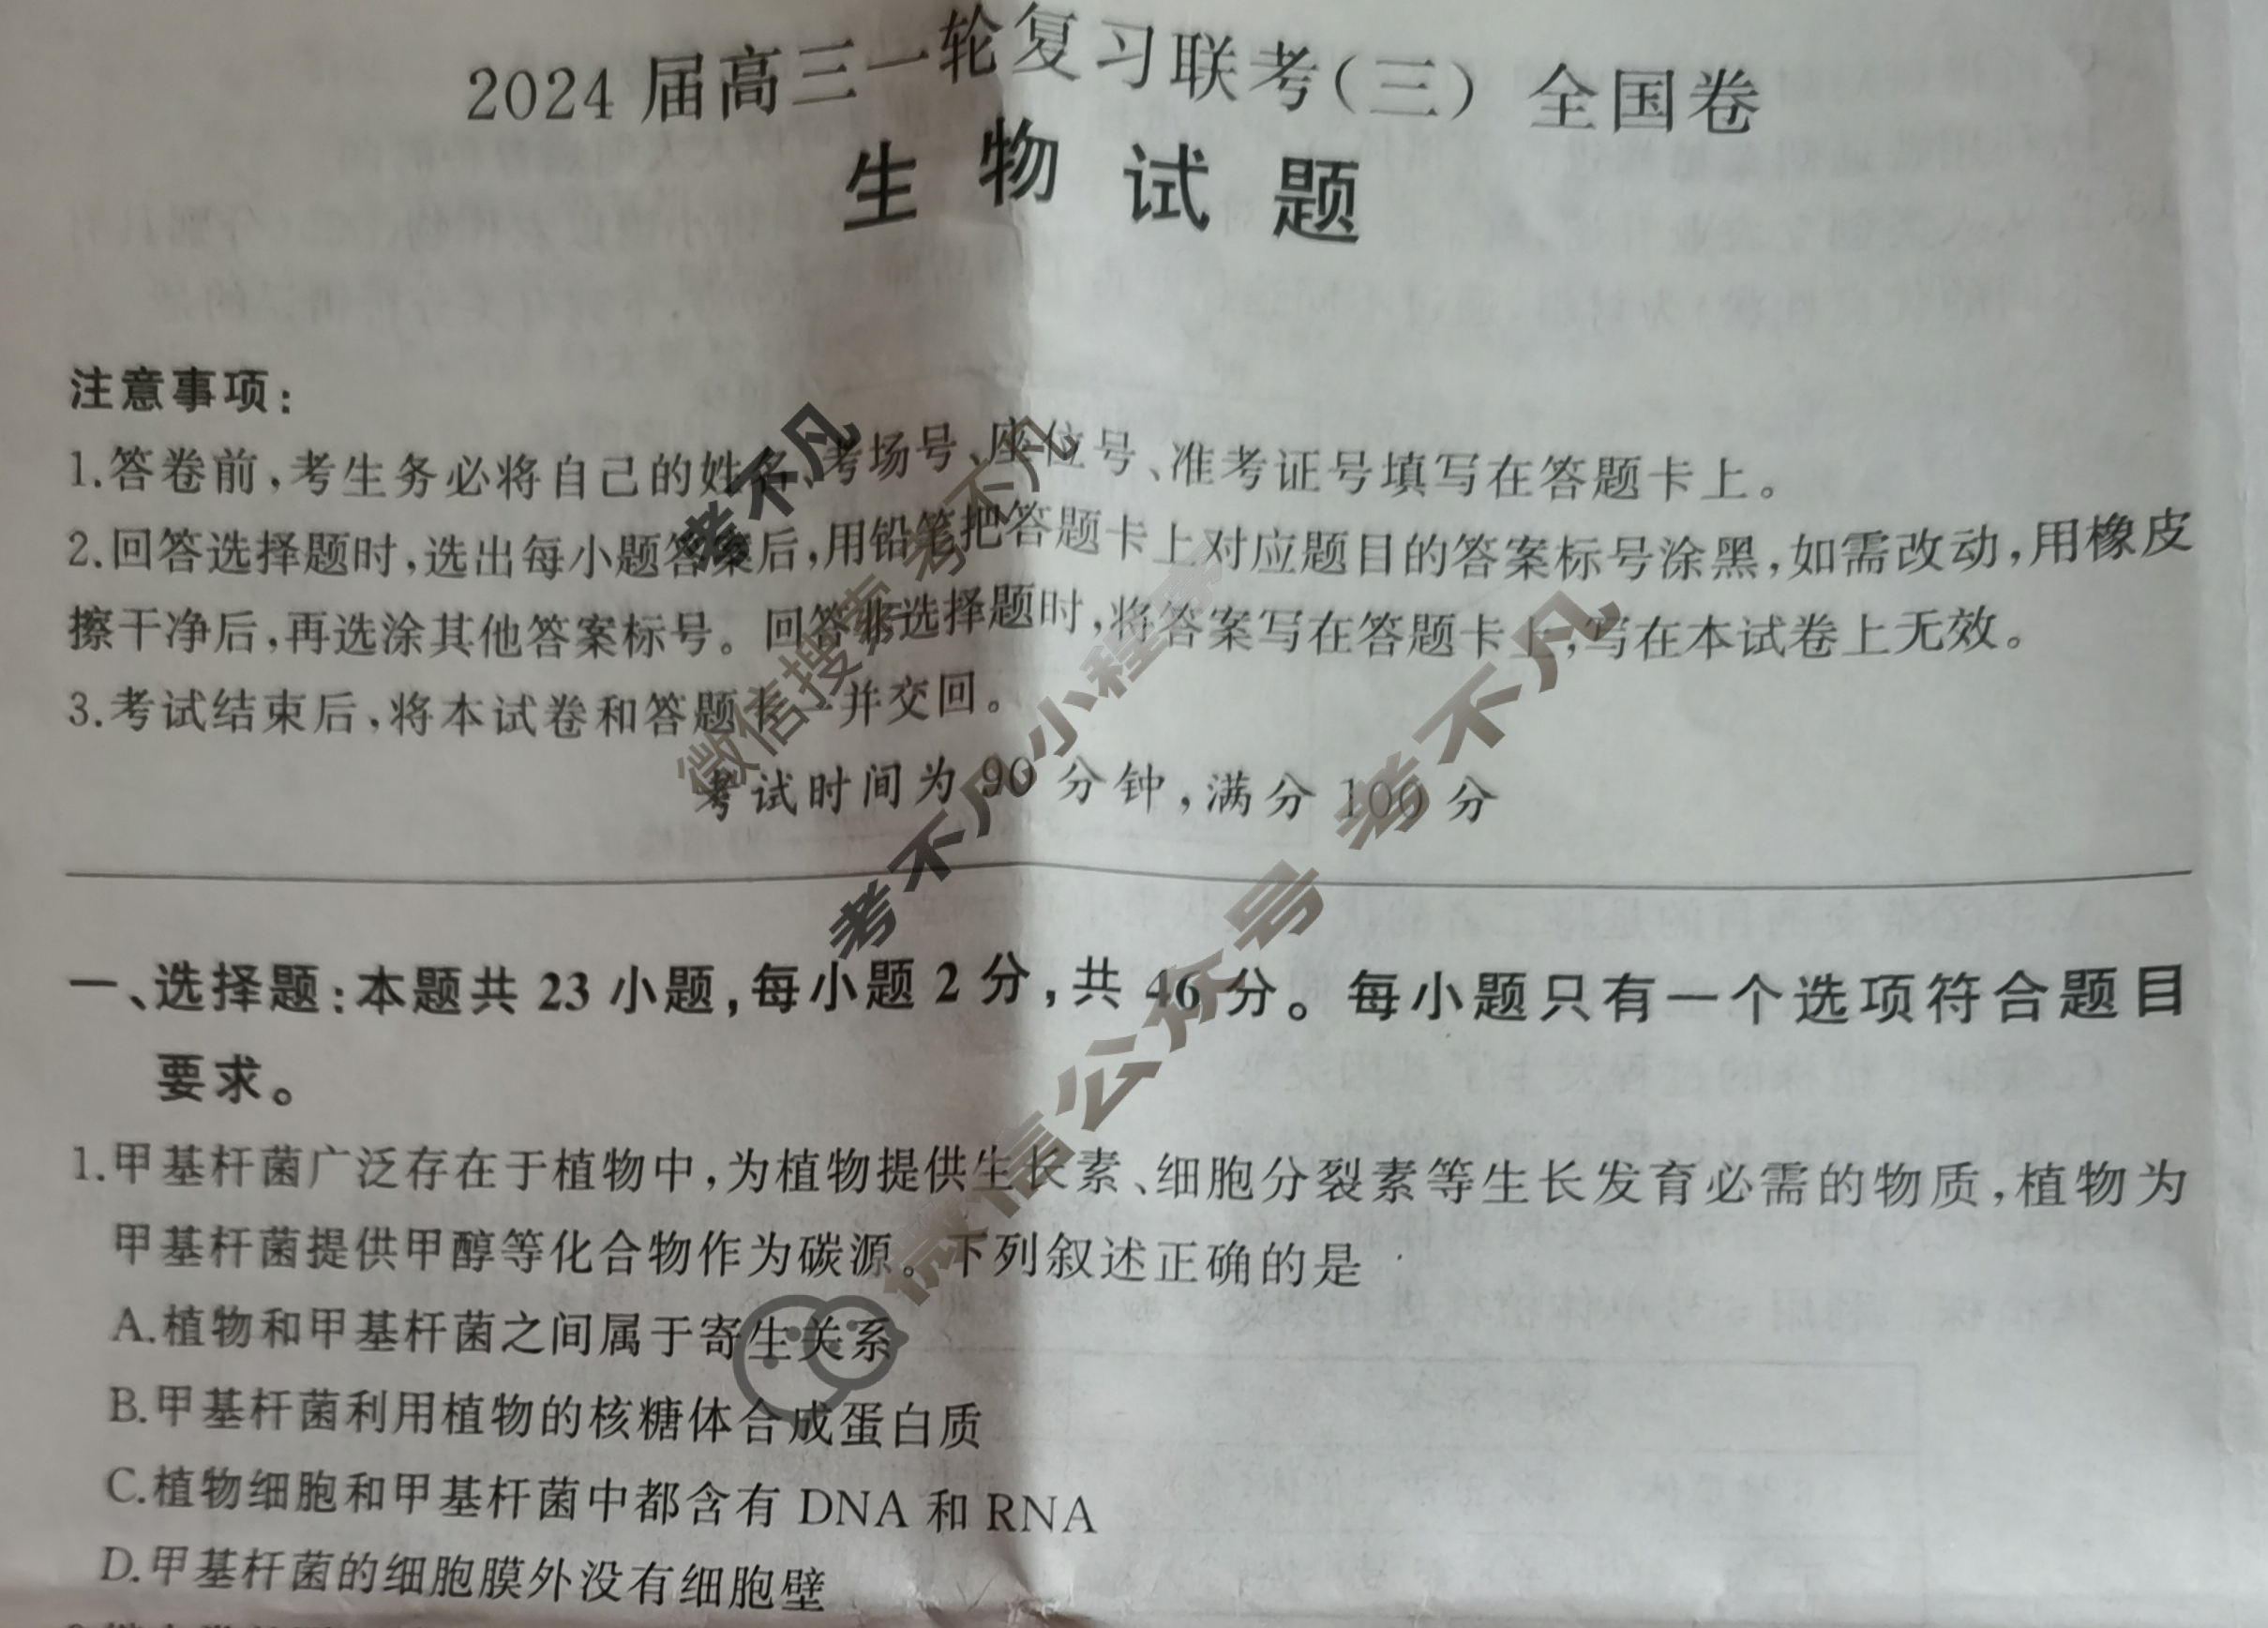 2024届高三一轮复习联考(三) 全国卷
生物试题
注意事项:
1.答卷前,考生务必将自己的姓名、考场号、座位号、准考证号填写在答题卡上。
2.回答选择题时,选出每小题答案后,用铅笔把答题卡上对应题目的答案标号涂黑,如需改动,用橡皮
擦干净后,再选涂其他答案标号。回答非选择题时,将答案写在答题卡上,写在本试卷上无效。
3.考试结束后,将本试卷和答题卡一并交回。
考试时间为90分钟,满分100分
一、选择题:本题共23小题,每小题2分,共46分。每小题只有一个选项符合题目
要求。
1.甲基杆菌广泛存在于植物中,为植物提供生长素、细胞分裂素等生长发育必需的物质,植物为
甲基杆菌提供甲醇等化合物作为碳源。下列叙述正确的是
A.植物和甲基杆菌之间属于寄生关系
B.甲基杆菌利用植物的核糖体合成蛋白质
C.植物细胞和甲基杆菌中都含有DNA和RNA
D.甲基杆菌的细胞膜外没有细胞壁
考不凡
微信搜索 考不凡
考不凡小程序
微信公众号 考不凡